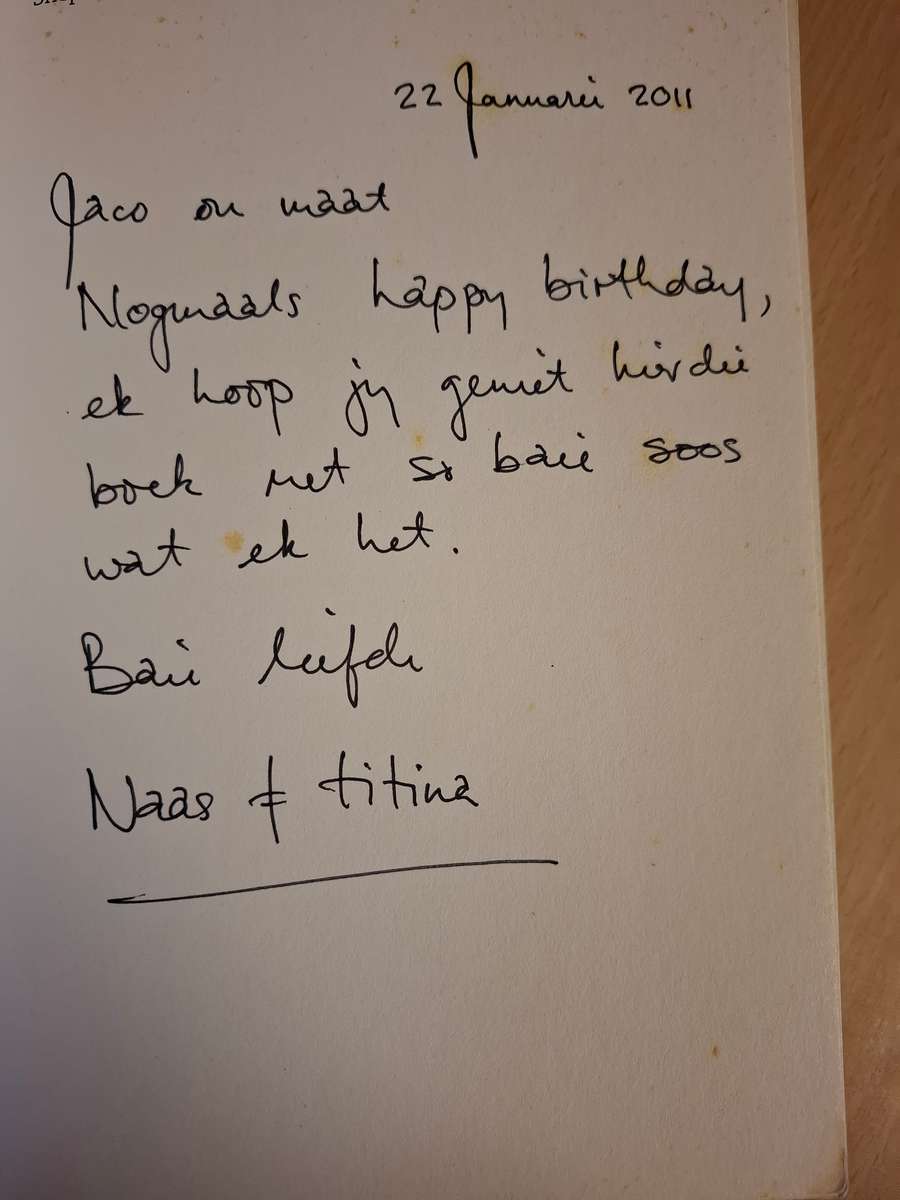 22 Januarie 2011
Jaco ou maat
Nogmaals happy birthday,
ek hoop jy geniet hierdie
boek net so baie soos
wat ek het.
Baie liefde
Naas & titina